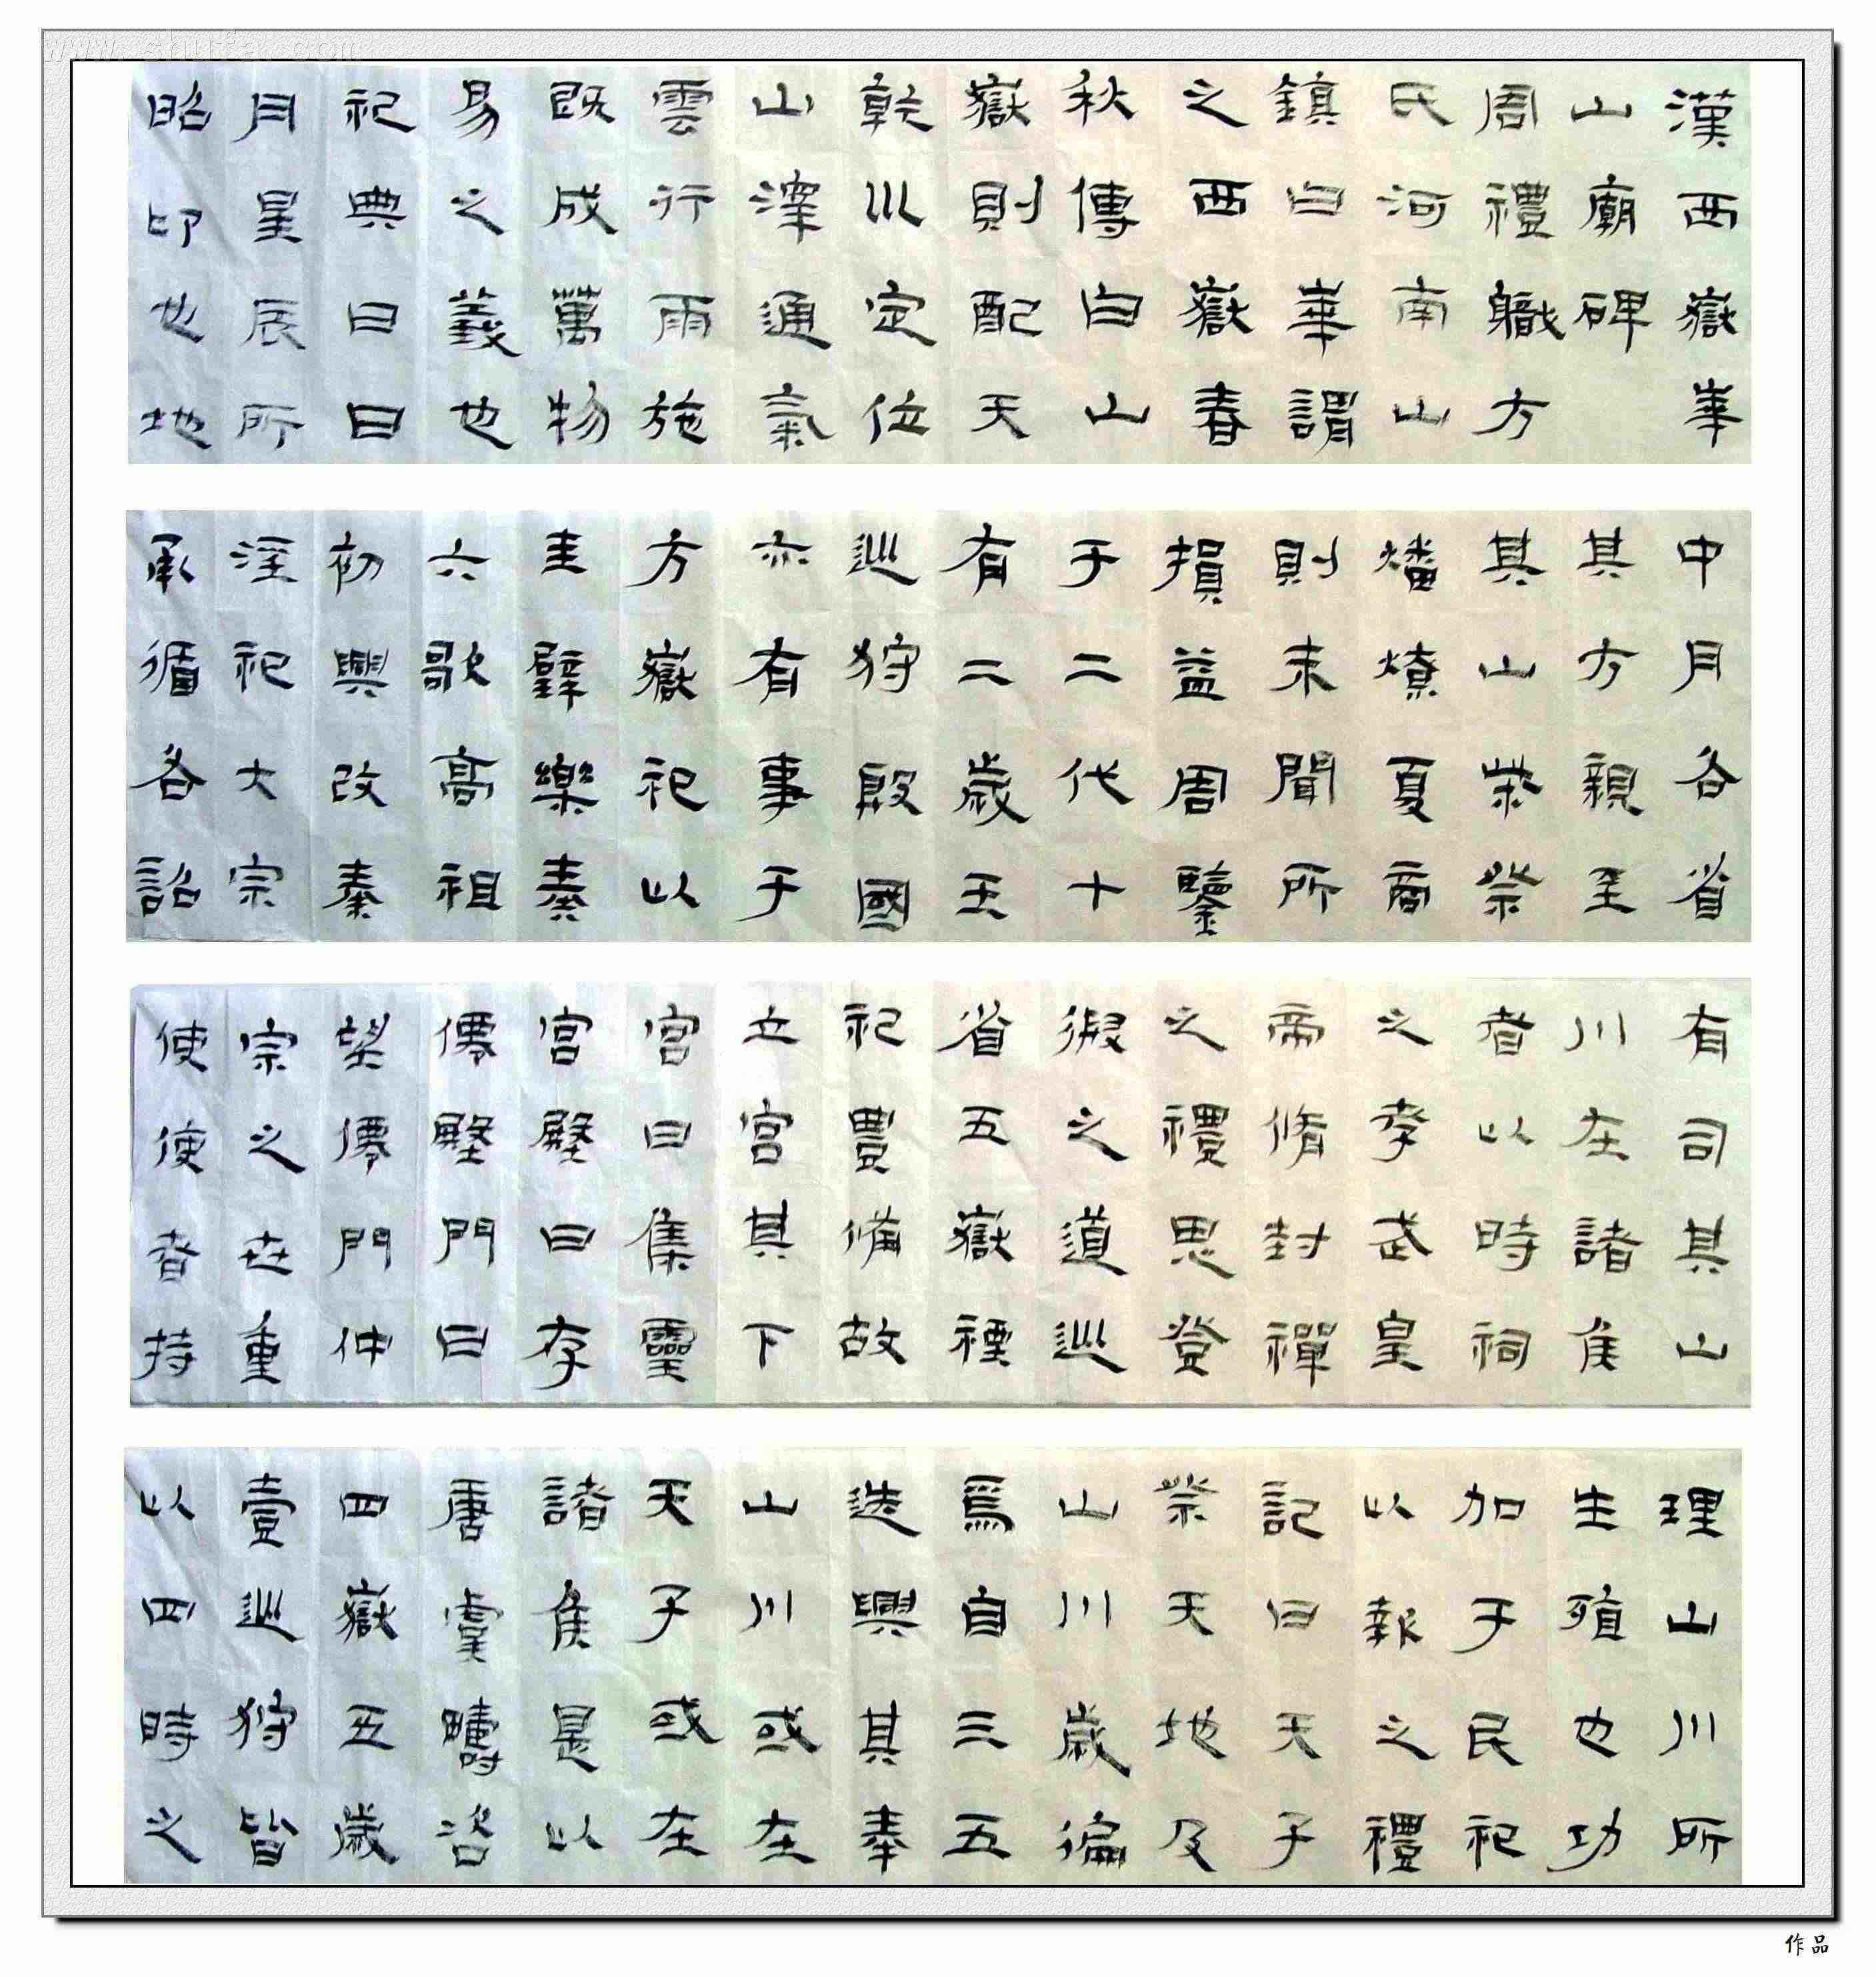 漢西嶽華
山廟碑
周禮軄方
氏河南山
鎮曰華謂
之西嶽春
秋傳曰山
嶽則配天
乾巛定位
山澤通氣
雲行雨施
既成萬物
易之義也
祀典曰日
月星辰所
昭卬也地
中月各省
其方親至
其山柴祭
燔燎夏商
則未聞所
損益周鑒
于二代十
有二歲王
巡狩殷國
亦有事于
方嶽祀以
圭璧樂奏
六歌高祖
初興改秦
淫祀大宗
承循各詔
有司其山
川在諸侯
者以時祠
之孝武皇
帝脩封禪
之禮思登
徦之道巡
省五嶽禋
祀豐備故
立宮其下
宮曰集靈
宮殿曰存
僊殿門曰
望僊門仲
宗之世重
使使者持
理山川所
生殖也功
加于民祀
以報之禮
記曰天子
祭天地及
山川歲徧
焉自三五
迭興其奉
山川或在
天子或在
諸侯是以
唐虞疇咨
四嶽五歲
壹巡狩皆
以四時之
作品
www.shufa.com